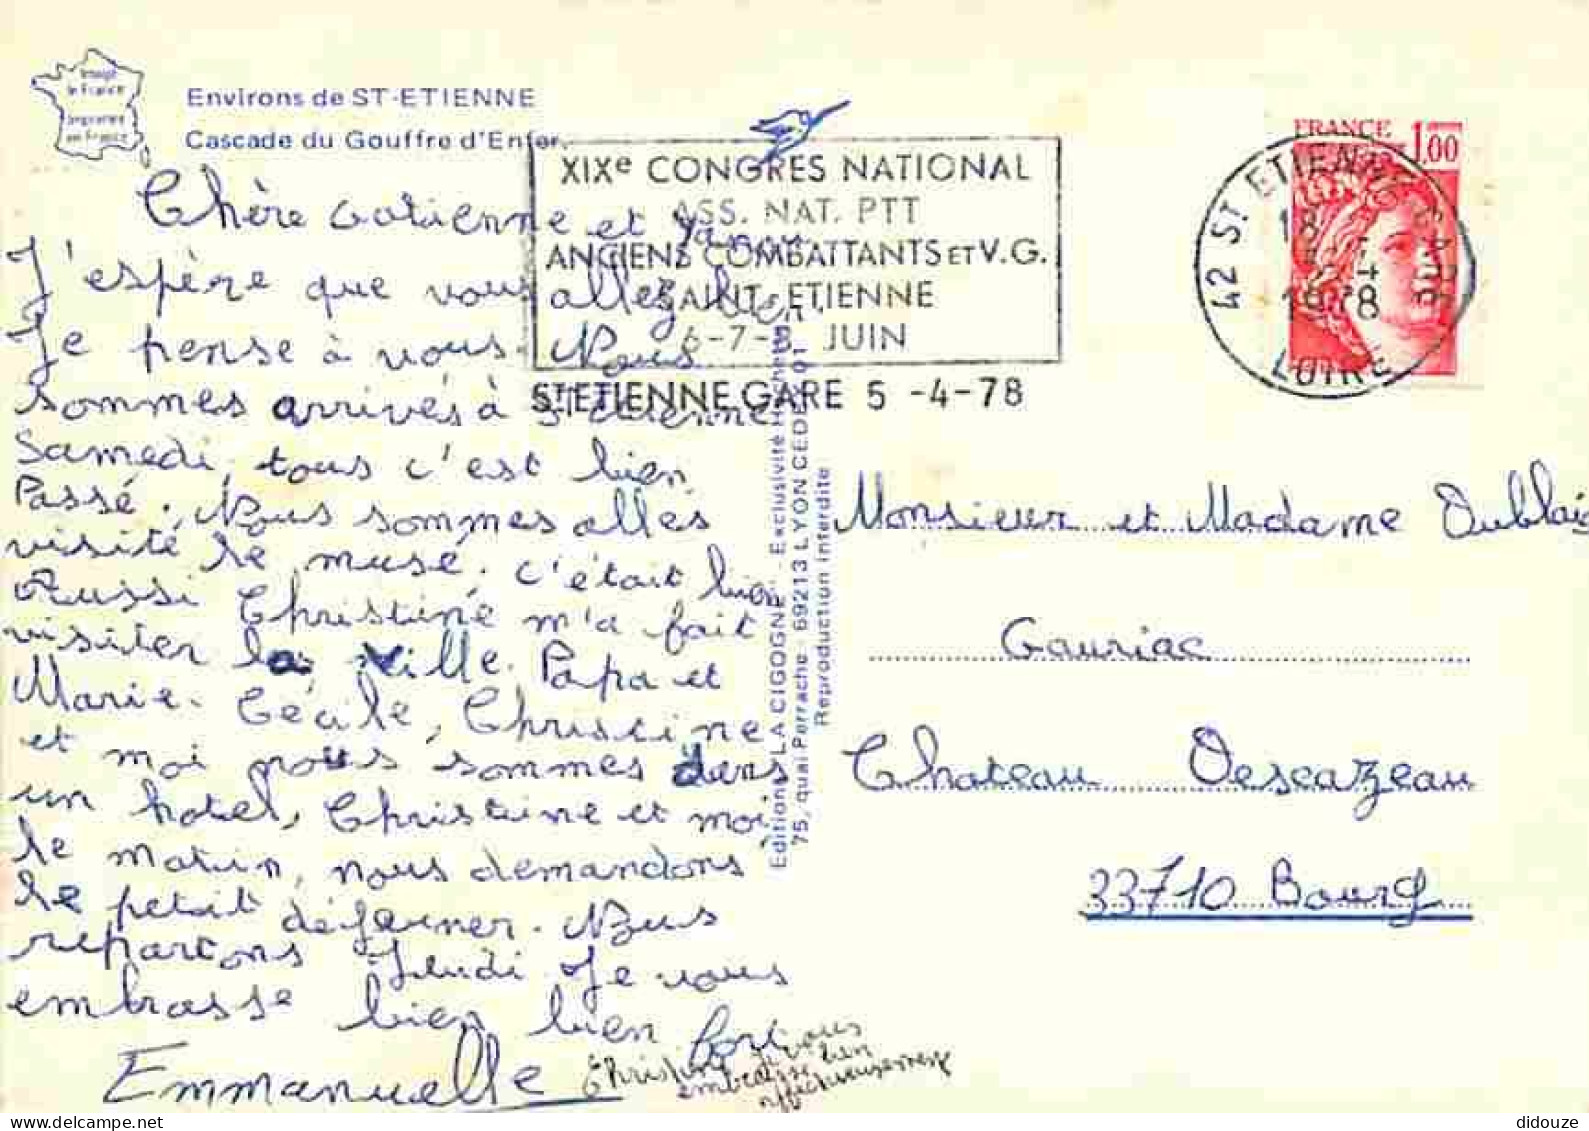 Imagé
en France
Imprimé
en France
Environs de ST-ETIENNE
Cascade du Gouffre d'Enfer.
XIXe CONGRES NATIONAL
ASS. NAT. PTT
ANCIENS COMBATTANTS ET V.G.
SAINT-ETIENNE
6-7- JUIN
ST ETIENNE GARE 5 -4-78
FRANCE 1,00
42 ST ETIENNE GARE
18
5-4
1978
LOIRE
Chère et
J'espère que vous allez bien.
Je pense à vous. Nous
sommes arrivés à St etienne
Samedi, tous c'est bien
Passé. Nous sommes allés
visité le musé. c'était bien
Aussi Christine m'a fait
visiter la ville. Papa et
Marie-Cécile, Christine
et moi nous sommes dans
un hotel, Christine et moi
le matin, nous demandons
le petit déjeuner. Nous
repartons Jeudi. Je vous
embrasse bien bien fort
Emmanuelle
Christine je vous
embrasse bien
affectueusement
Editions LA CIGOGNE - Exclusivité Hachette
75, quai Perrache 69213 LYON CEDEX 01
Reproduction interdite
Monsieur et Madame Dublais
Gauriac
Chateau Deseazeau
33710 Bourg
didouze